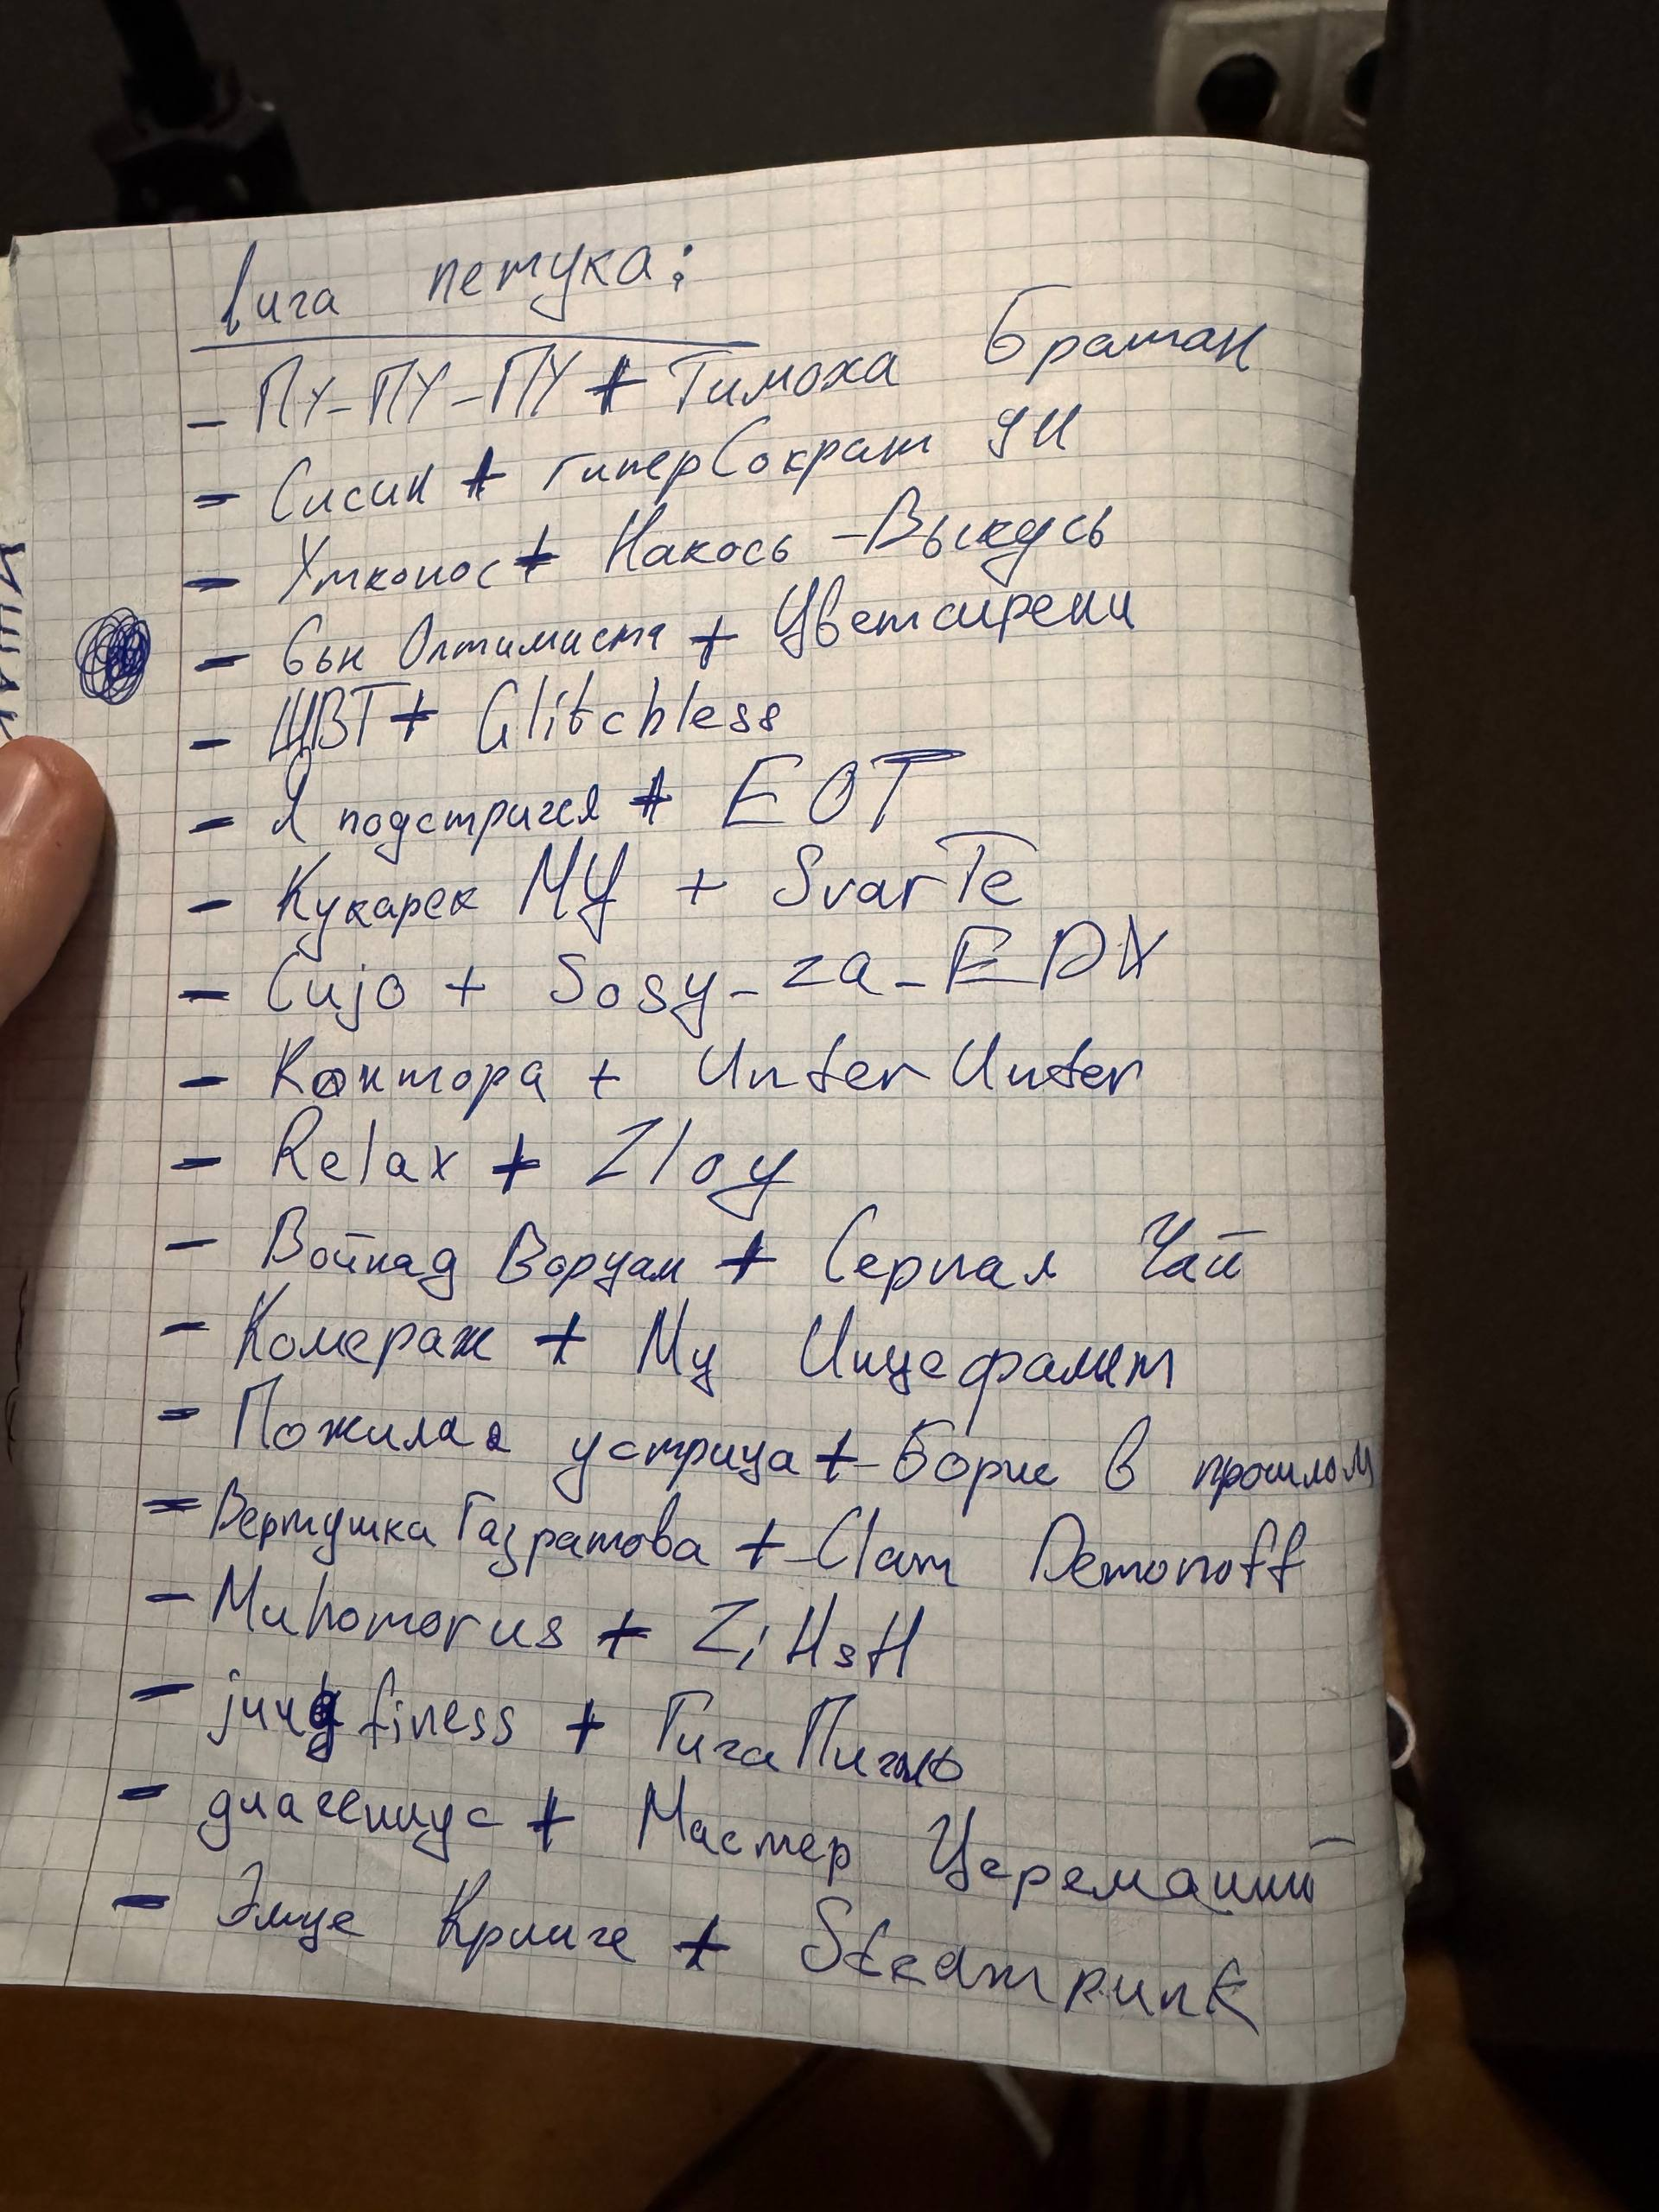 Лига петука:
- ПУ-ПУ-ПУ + Тимоха Братан
- Сисин + ГиперСократ ДИ
- Утконос + Накось-Выкусь
- Сын Оптимиста + Цветсирени
- ЩВТ + Glitchless
- Я подстригся + EOT
- Кукарек МЦ + SvarTe
- Cujo + Sosy-za-EDY
- Контора + UnterUnter
- Relax + Zloy
- Войнад Воруам + Серная Чай
- Комераж + Му Инцефалит
- Пожилая устрица + Борис в прошлом
- Вертушка Газратова + Clam Demonoff
- Muhomorus + ZiHsH
- jungfiness + ГигаПигмо
- диагениус + Мастер Церемаший
- Эмце Кринге + Steampunk